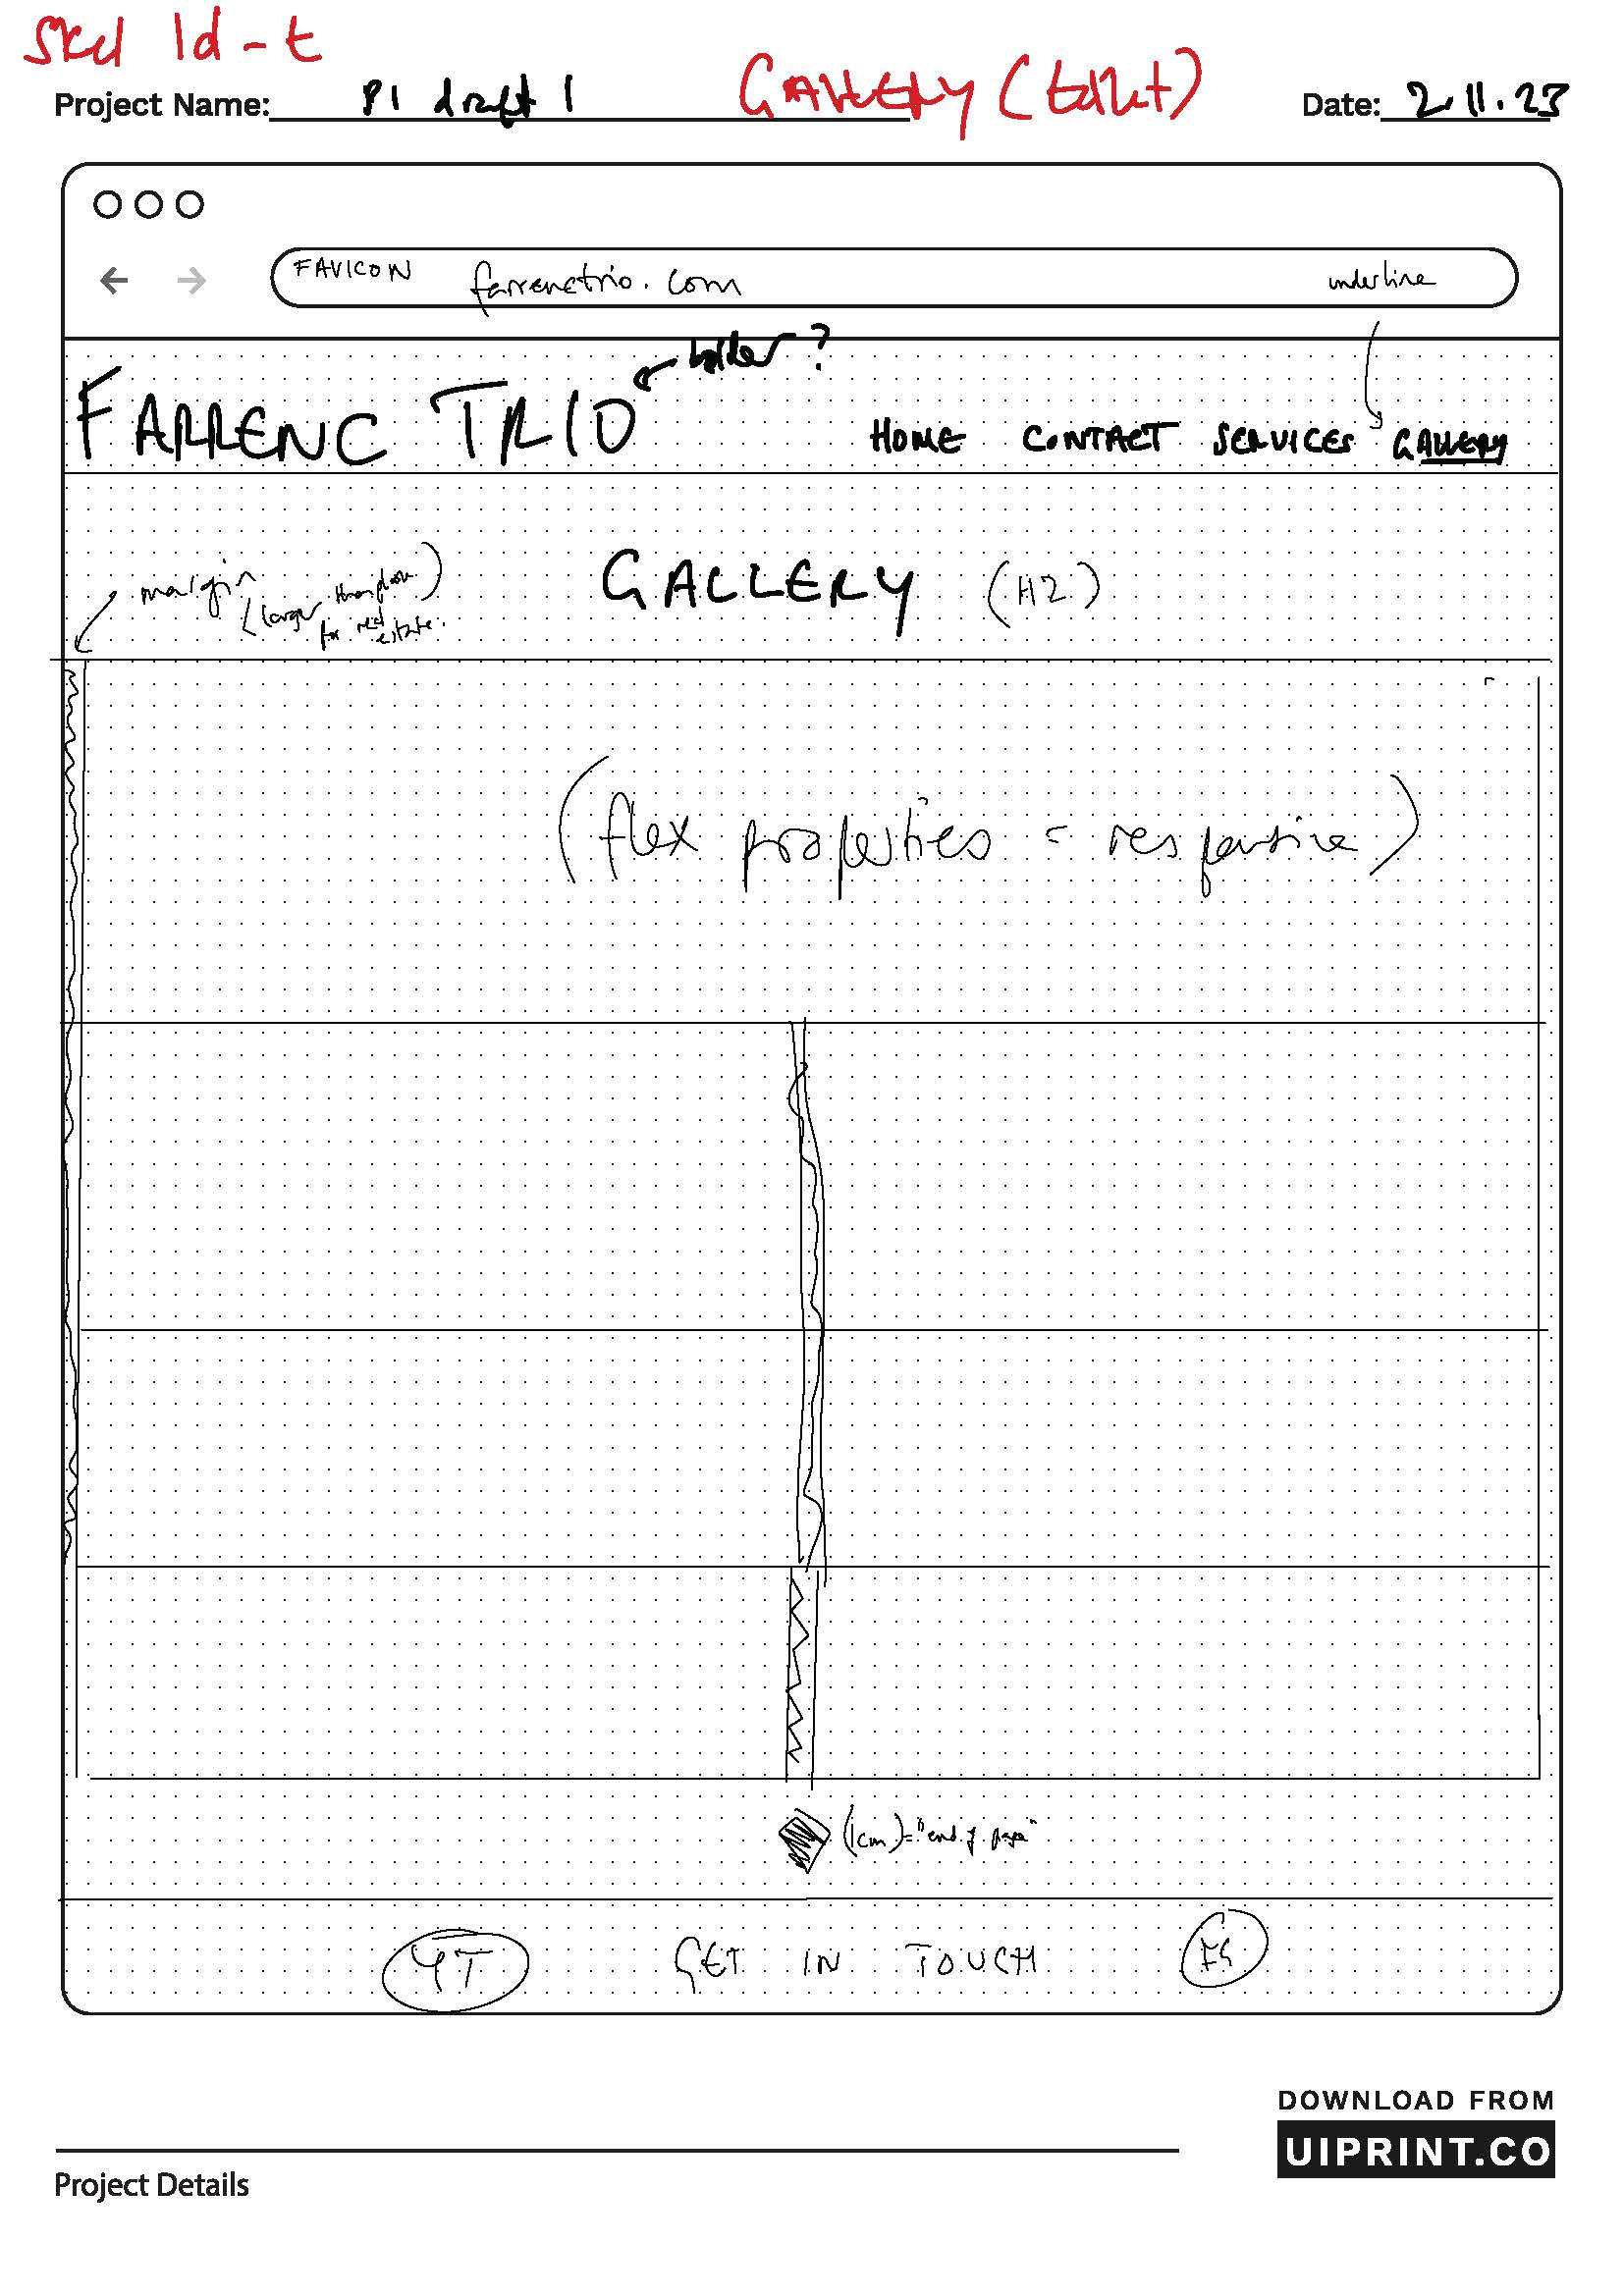 Project Name: P1 draft 1 GALLERY (tablet) Date: 2.11.23
FAVICON farrenctrio.com underline
bolder?
FARRENC TRIO HOME CONTACT SERVICES GALLERY
margin
(larger than phone)
for real estate.
GALLERY (H2)
(flex properties = responsive)
(1cm) = "end of page"
YT GET IN TOUCH
DOWNLOAD FROM
UIPRINT.CO
Project Details